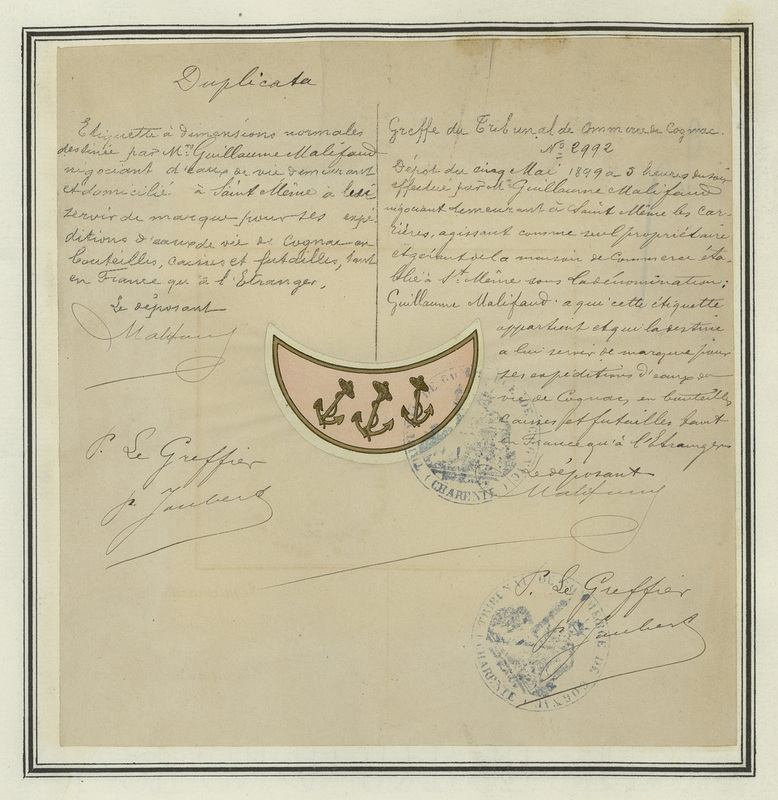 Duplicata
Etiquette à dimensions normales
destinée par Mr. Guillaume Malifaud
négociant d'eaux de vie demeurant
et domicilié à Saint Même à lui
servir de marque pour ses expé-
ditions d'eaux de vie de Cognac en
bouteilles, caisses et futailles, tant
en France qu'à l'Etranger.
Le déposant
Malifaud
P. Le Greffier
p. Joubert
Greffe du Tribunal de Commerce de Cognac.
No 2992
Dépôt du cinq Mai 1899 à 3 heures du soir
effectué par Mr. Guillaume Malifaud
négociant demeurant à Saint Même les Car-
rières, agissant comme seul propriétaire
et gérant de la maison de Commerce éta-
blie à St. Même sous la dénomination:
Guillaume Malifaud a qui cette étiquette
appartient et qui la destine
a lui servir de marque pour
ses expéditions d'eaux de
vie de Cognac, en bouteilles
caisses et futailles tant
en France qu'à l'Etranger
Le déposant
Malifaud
TRIBUNAL DE COMMERCE DE COGNAC
(CHARENTE)
P. Le Greffier
p. Joubert
TRIBUNAL DE COMMERCE DE COGNAC
(CHARENTE)